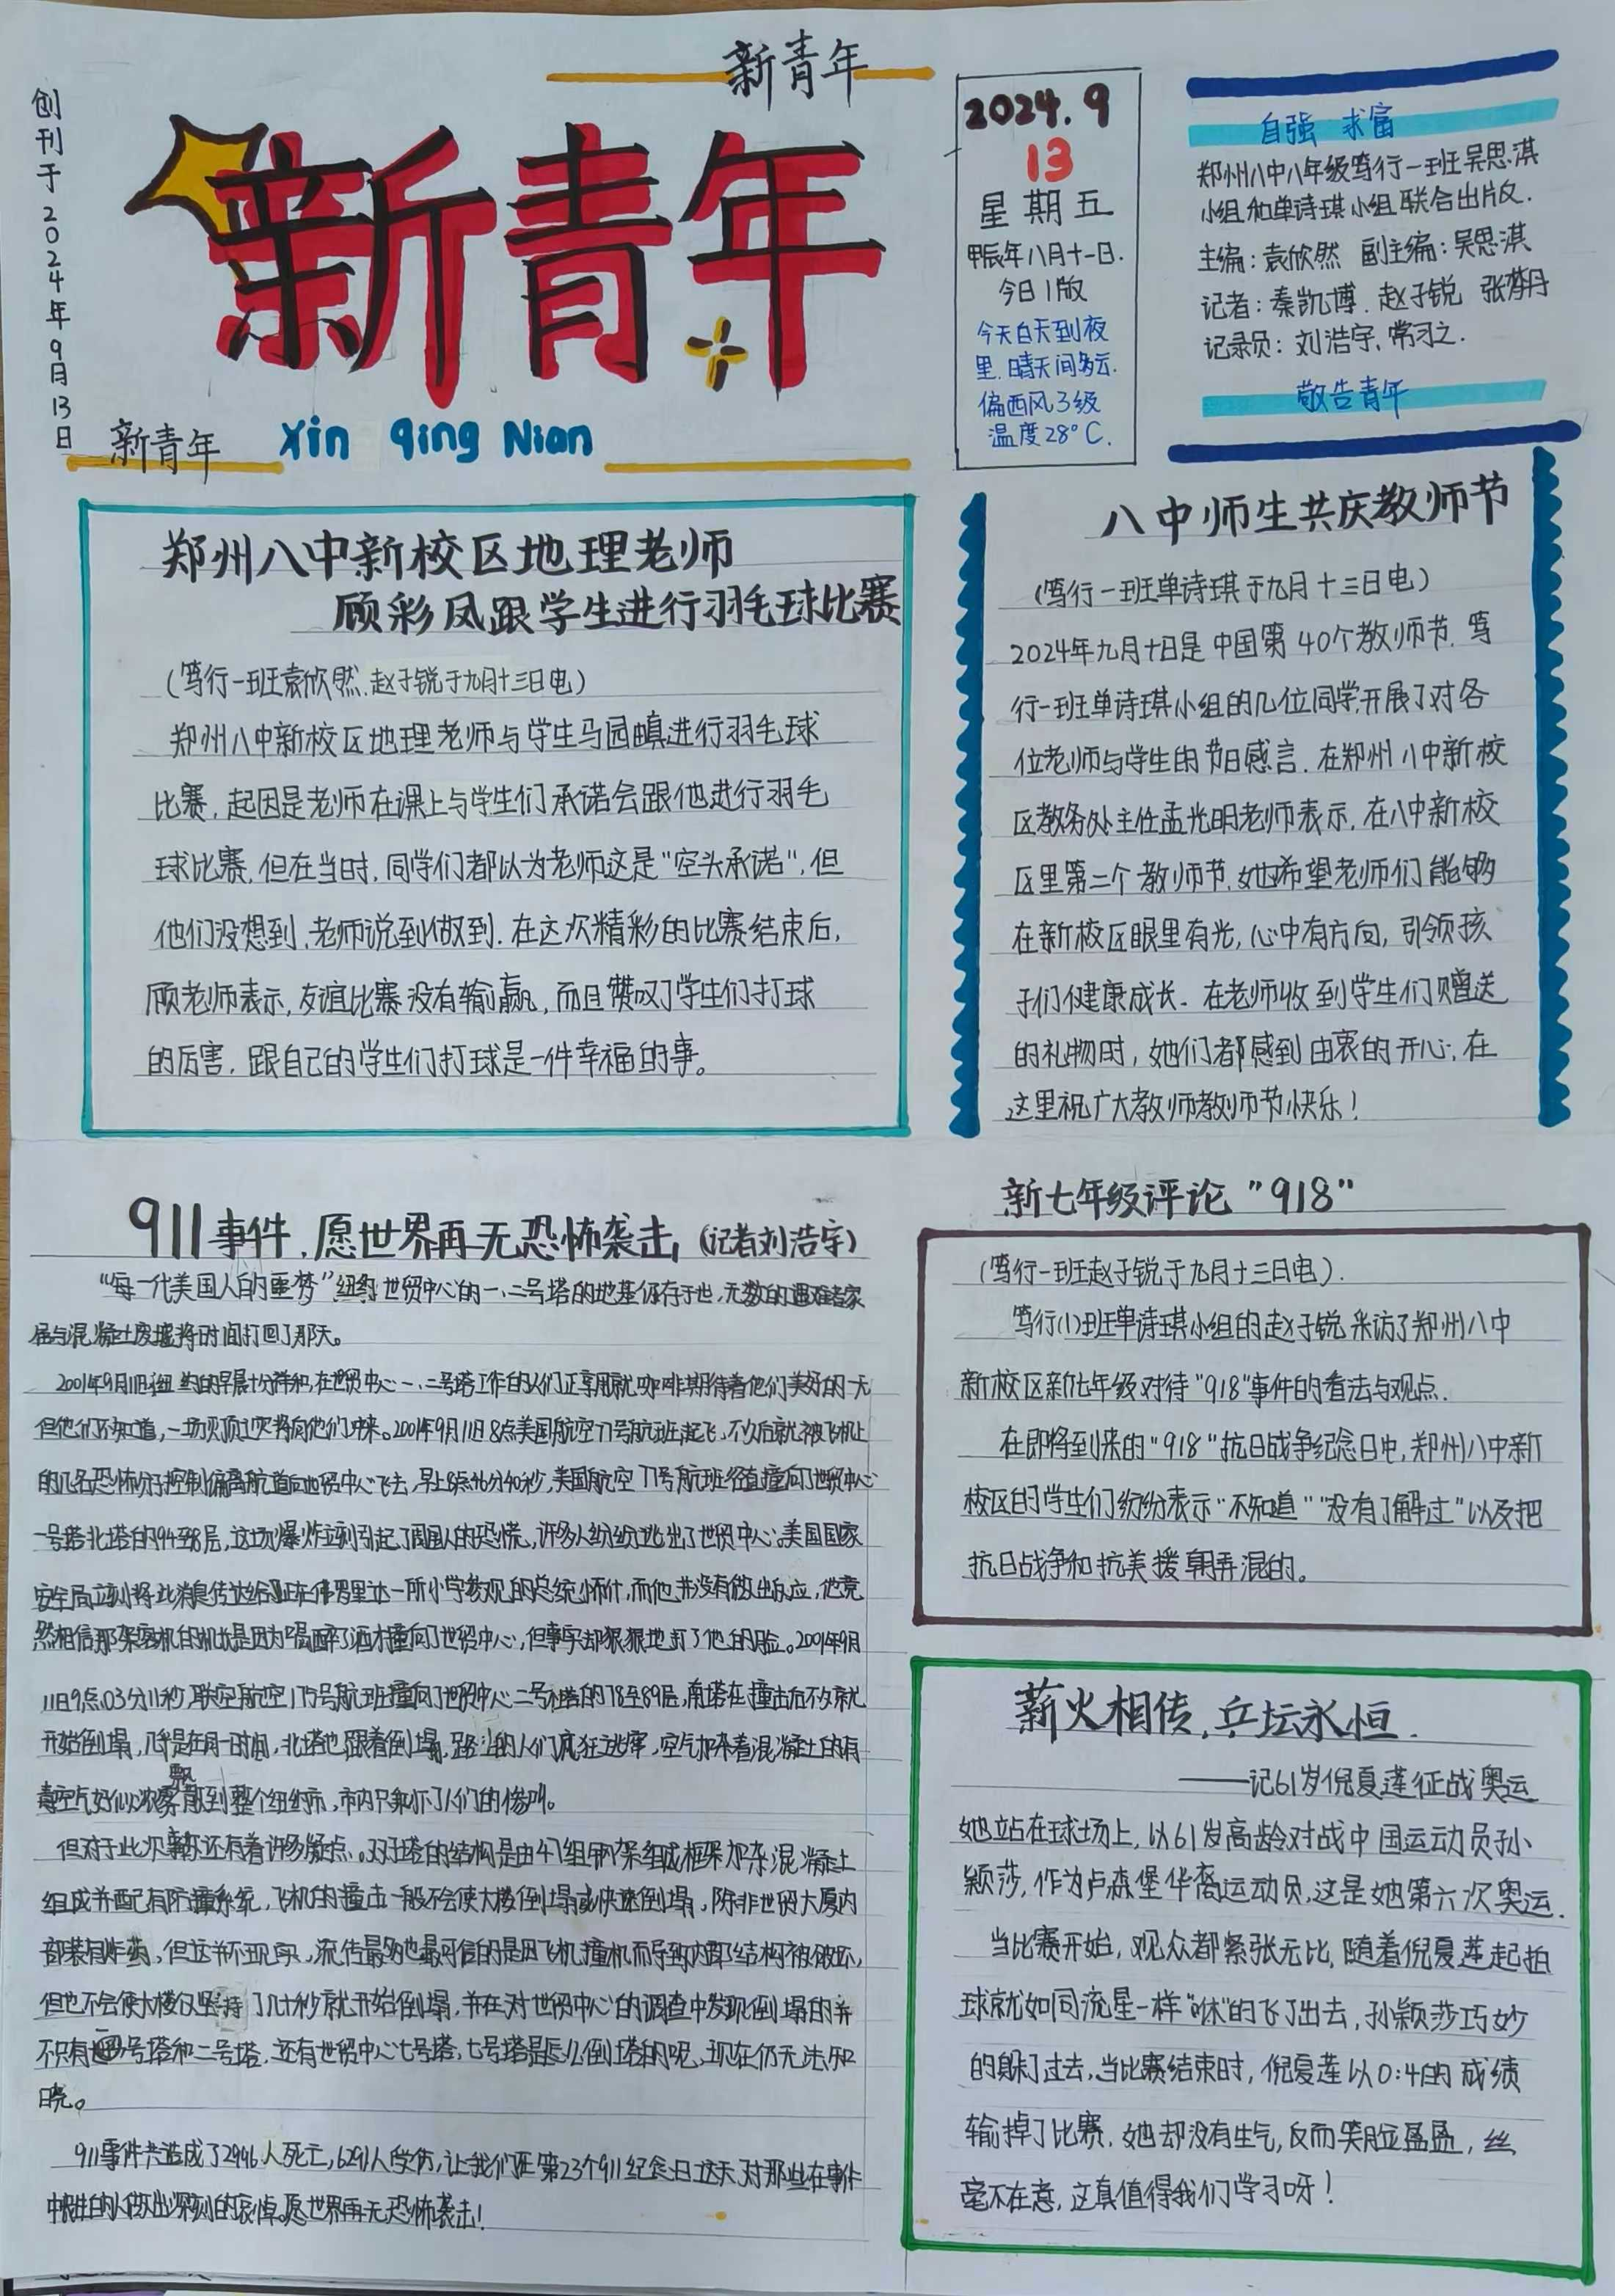 创刊于2024年9月13日
新青年
新青年
新青年
Xin qing Nian
2024.9
13
星期五
甲辰年八月十一日.
今日1版
今天白天到夜
里.晴天间多云.
偏西风3级
温度28°C.
自强 求富
郑州八中八年级笃行一班吴思淇
小组和单诗琪小组联合出版.
主编:袁欣然 副主编:吴思淇
记者:秦凯博.赵子锐 张梦丹
记录员:刘浩宇,常习之.
敬告青年
郑州八中新校区地理老师
顾彩凤跟学生进行羽毛球比赛
(笃行一班袁欣然.赵子锐于九月十三日电)
郑州八中新校区地理老师与学生马园 进行羽毛球
比赛,起因是老师在课上与学生们承诺会跟他进行羽毛
球比赛,但在当时,同学们都以为老师这是"空头承诺",但
他们没想到,老师说到做到.在这次精彩的比赛结束后,
顾老师表示,友谊比赛没有输赢,而且赞叹了学生们打球
的厉害,跟自己的学生们打球是一件幸福的事。
八中师生共庆教师节
(笃行一班单诗琪于九月十三日电)
2024年九月十日是中国第40个教师节.笃
行一班单诗琪小组的几位同学,开展了对各
位老师与学生的节日感言.在郑州八中新校
区教务处主任孟光明老师表示,在八中新校
区里第二个教师节,她希望老师们能够
在新校区眼里有光,心中有方向,引领孩
子们健康成长.在老师收到学生们赠送
的礼物时,她们都感到由衷的开心,在
这里祝广大教师教师节快乐!
911事件,愿世界再无恐怖袭击,(记者刘浩宇)
"每一代美国人的噩梦"纽约世贸中心的一、二号塔的地基仍存于世,无数的遇难者家
属与混凝土废墟将时间打回了那天。
2001年9月11日纽约的早晨十分祥和,在世贸中心一、二号塔工作的人们正享用咖啡期待着他们美好的一天
但他们不知道,一场灭顶之灾将向他们冲来。2001年9月11日8点美国航空77号航班起飞,不久后就被飞机上
的几名恐怖分子控制偏离航道向世贸中心飞去,早上8点46分40秒,美国航空77号航班径直撞向了世贸中心
一号塔北塔的94至98层,这场爆炸立刻引起了周围人的恐慌,许多人纷纷逃出了世贸中心。美国国家
安全局立刻将此消息传达给正在佛罗里达一所小学参观的总统小布什,而他并没有做出反应,他竟
然相信那架客机的机长是因为喝醉了酒才撞向了世贸中心,但事实却狠狠地打了他的脸。2001年9月
11日9点03分11秒,联合航空175号航班撞向了世贸中心二号塔的78至89层,南塔在撞击后不久就
开始倒塌,几乎是在同一时间,北塔也跟着倒塌,路上的人们疯狂逃窜,空气加杂着混凝土的有
毒空气好似浓雾飘散到整个纽约市,市内只剩下人们的惨叫。
但对于此次事故还有着许多疑点。双子塔的结构是由47组钢架组成框架加杂混凝土
组成并配有防撞系统,飞机的撞击一般不会使大楼倒塌或快速倒塌,除非世贸大厦内
部装有炸药,但这并不现实,流传最多也最可信的是因飞机撞机而导致内部结构被破坏,
但也不会使大楼仅坚持了几十秒就开始倒塌,并在对世贸中心的调查中发现倒塌的并
不只有一号塔和二号塔,还有世贸中心七号塔,七号塔是怎么倒塔的呢,现在仍无法知
晓。
911事件共造成了2996人死亡,6291人受伤,让我们在第23个911纪念日这天,对那些在事件
中牺牲的人做出深刻的哀悼,愿世界再无恐怖袭击!
新七年级评论"918"
(笃行一班赵子锐于九月十三日电).
笃行(1)班单诗琪小组的赵子锐采访了郑州八中
新校区新七年级对待"918"事件的看法与观点.
在即将到来的"918"抗日战争纪念日中,郑州八中新
校区的学生们纷纷表示"不知道""没有了解过"以及把
抗日战争和抗美援朝弄混的。
薪火相传,乒坛永恒.
——记61岁倪夏莲征战奥运
她站在球场上,以61岁高龄对战中国运动员孙
颖莎,作为卢森堡华裔运动员,这是她第六次奥运.
当比赛开始,观众都紧张无比,随着倪夏莲起拍
球就如同流星一样"咻"的飞了出去,孙颖莎巧妙
的躲了过去,当比赛结束时,倪夏莲以0:4的成绩
输掉了比赛,她却没有生气,反而笑脸盈盈,丝
毫不在意,这真值得我们学习呀!